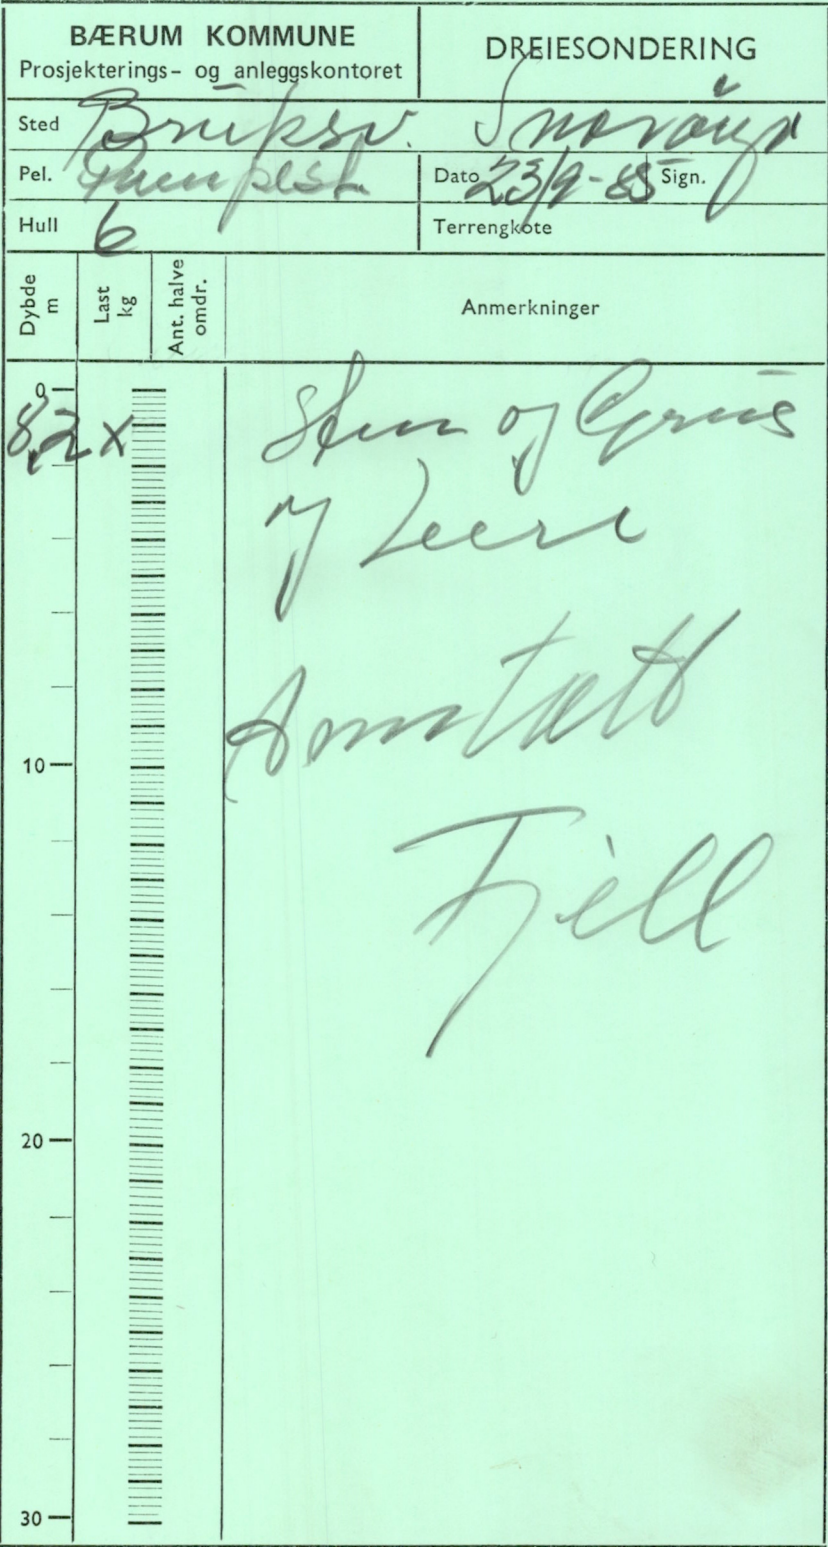 BÆRUM KOMMUNE
Prosjekterings- og anleggskontoret
DREIESONDERING
Sted Bruksv. Snarøya
Pel. Pumpest.
Dato 23/9-85 Sign.
Hull 6
Terrengkote
Dybde m
Last kg
Ant. halve omdr.
Anmerkninger
0
8,2 x
Sten og Grus
og Leire
Antatt
Fjell
10
20
30